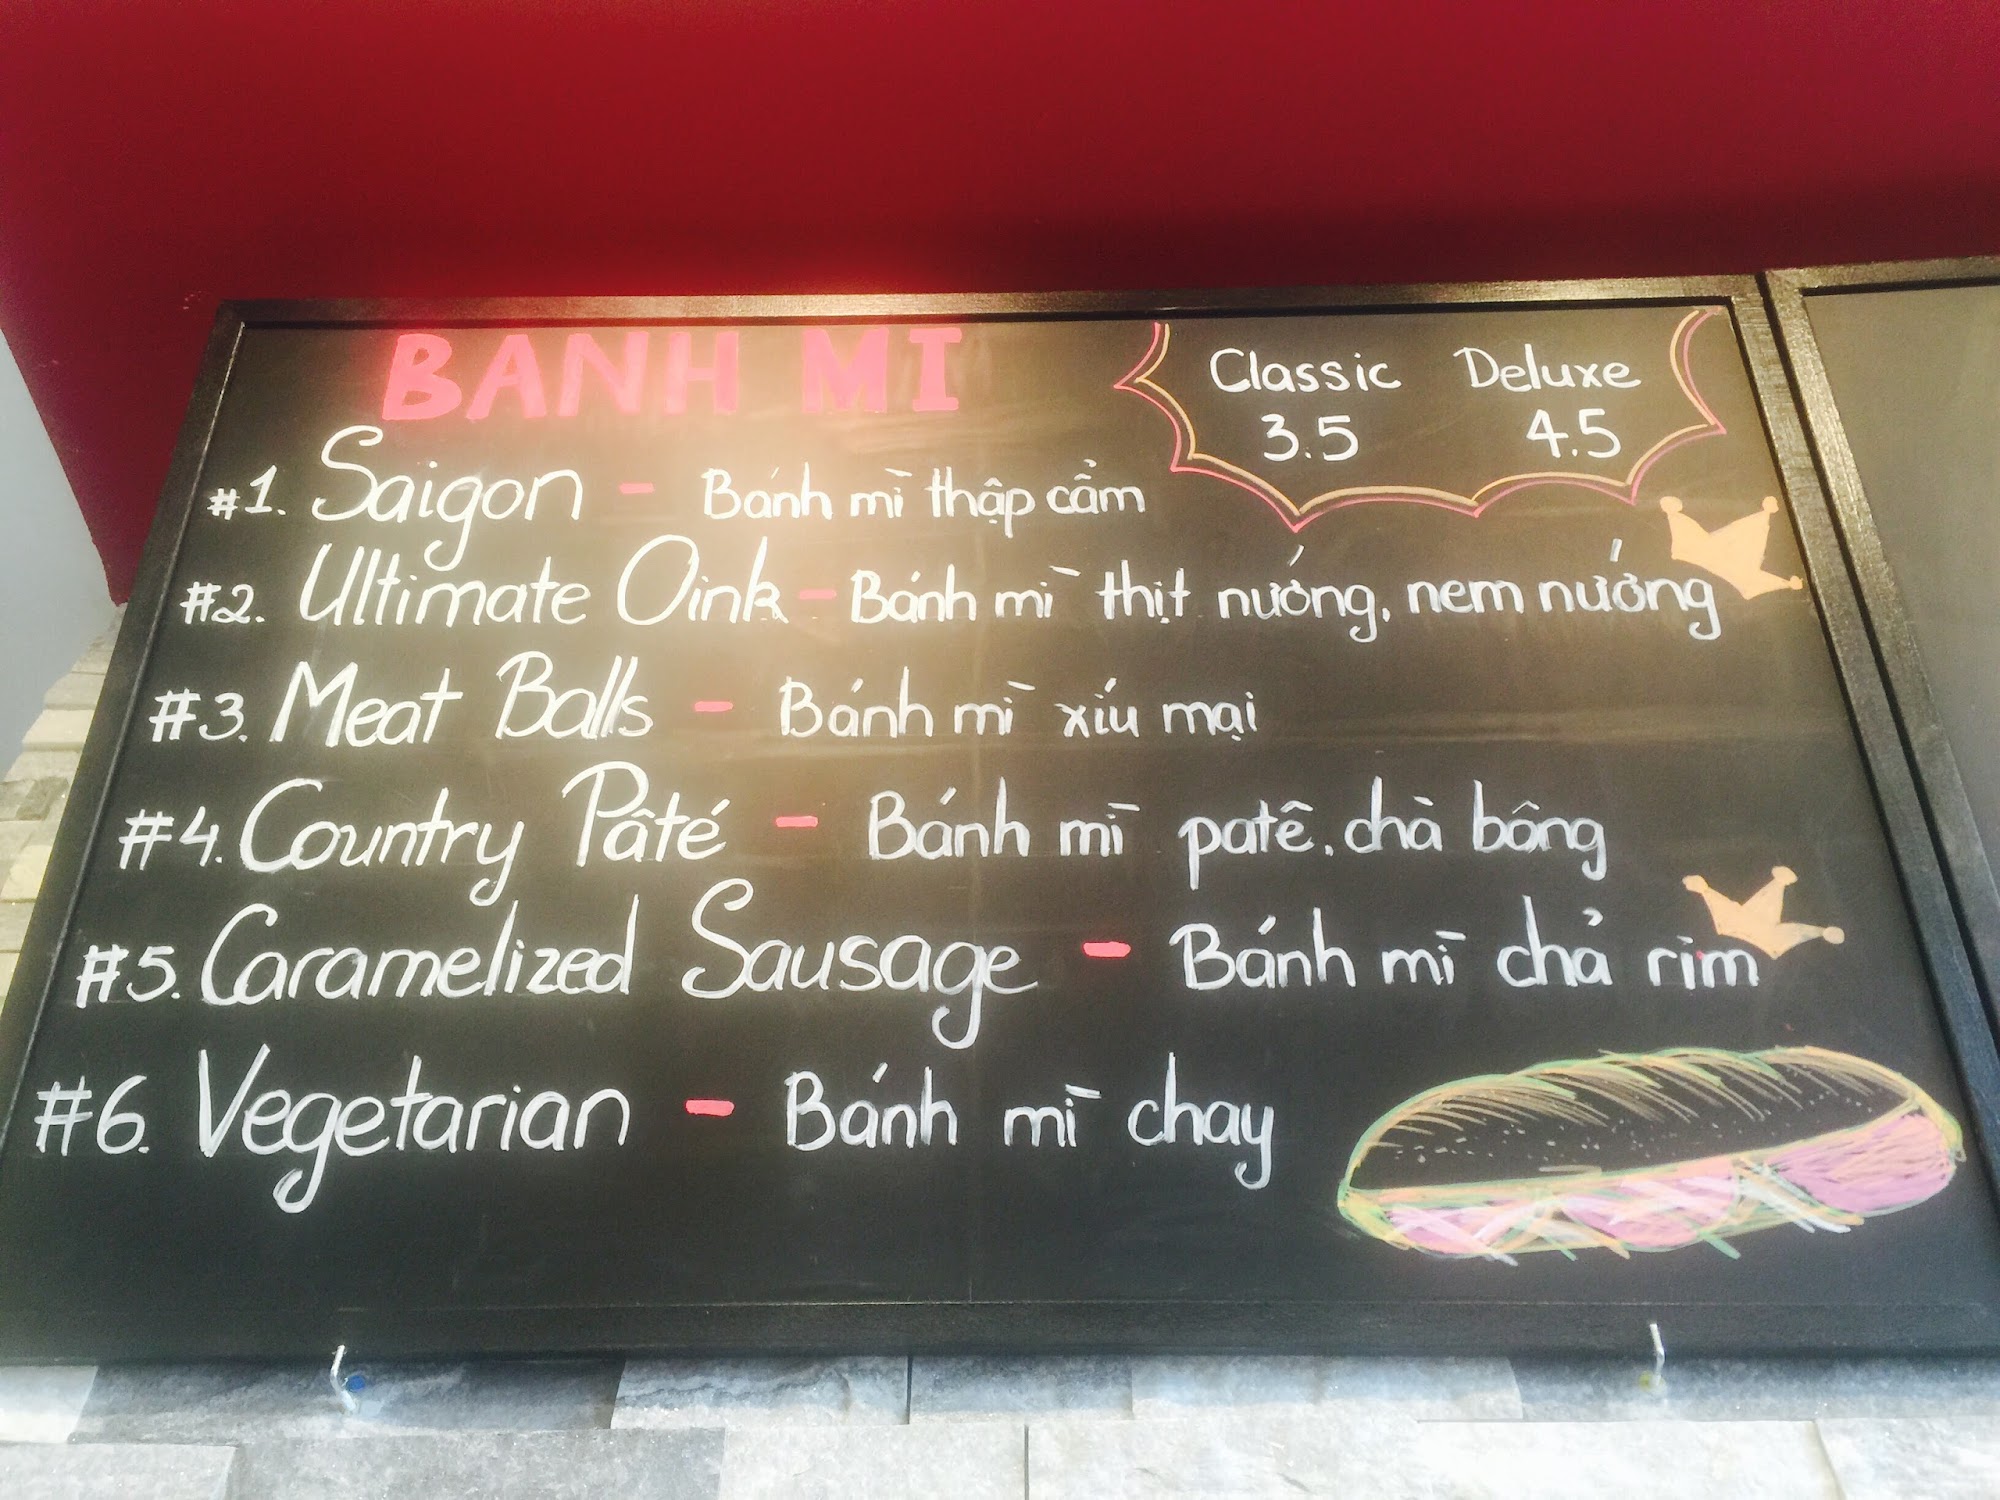 BANH MI
Classic Deluxe
3.5 4.5
#1. Saigon - Bánh mì thập cẩm
#2. Ultimate Oink - Bánh mì thịt nướng, nem nướng
#3. Meat Balls - Bánh mì xíu mại
#4. Country Pâté - Bánh mì patê, chà bông
#5. Caramelized Sausage - Bánh mì chả rim
#6. Vegetarian - Bánh mì chay